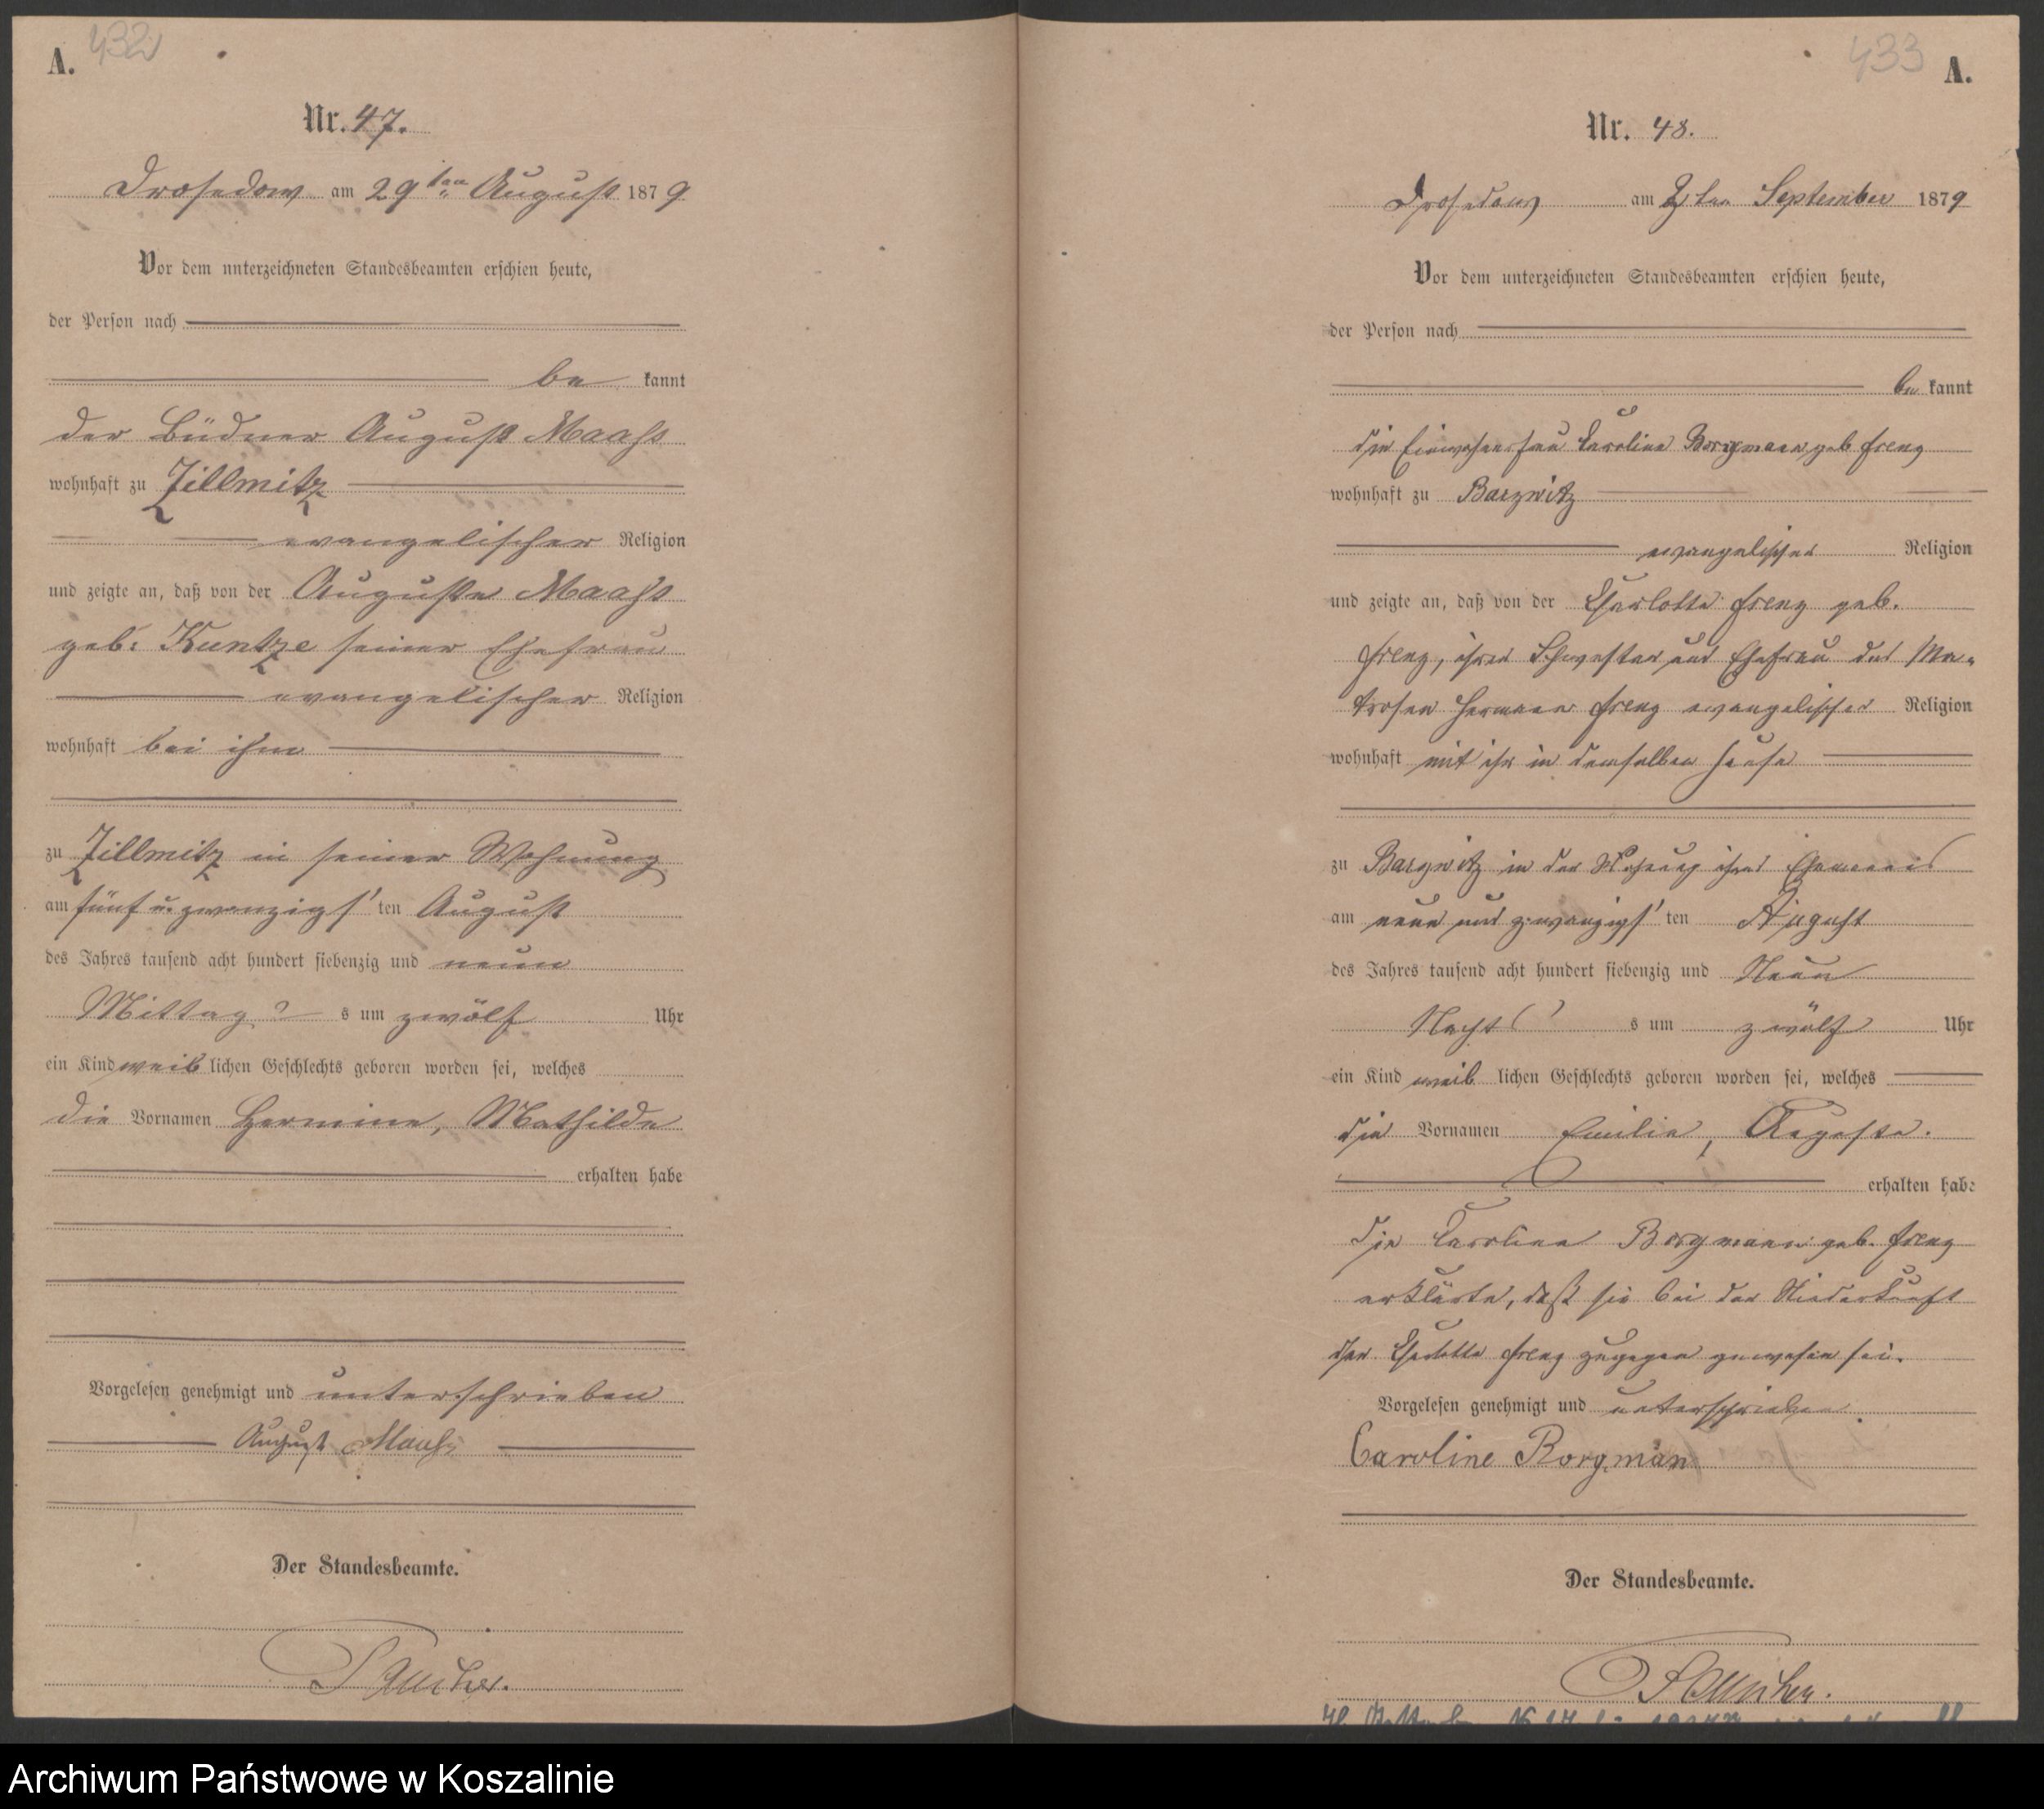 A. 432
Nr. 47.
Drosedow am 29ten August 1879
Vor dem unterzeichneten Standesbeamten erschien heute,
der Person nach
be kannt
der Büdner August Maass
wohnhaft zu Zillmitz
evangelischer Religion
und zeigte an, daß von der Auguste Maass
geb. Kuntze seiner Ehefrau
evangelischer Religion
wohnhaft bei ihm
zu Zillmitz in seiner Wohnung
am fünf u. zwanzigs' ten August
des Jahres tausend acht hundert siebenzig und neun
Mittag s um zwölf Uhr
ein Kind weib lichen Geschlechts geboren worden sei, welches
die Vornamen Hermine, Mathilde
erhalten habe
Vorgelesen genehmigt und unterschrieben
August Maass
Der Standesbeamte.
433 A.
Nr. 48.
Drosedow am 2ten September 1879
Vor dem unterzeichneten Standesbeamten erschien heute,
der Person nach
be kannt
die Einwohnerfrau Caroline Borgmann geb Freng
wohnhaft zu Barzwitz
evangelischer Religion
und zeigte an, daß von der Charlotte Freng geb.
Freng, ihrer Schwester und Ehefrau des Ma-
trosen Hermann Freng evangelischer Religion
wohnhaft mit ihr in demselben Hause
zu Barzwitz in der Wohnung ihres Ehemannes
am neun und zwanzigs' ten August
des Jahres tausend acht hundert siebenzig und Neun
Nacht s um zwölf Uhr
ein Kind weib lichen Geschlechts geboren worden sei, welches
die Vornamen Emilie, Auguste.
erhalten habe
Die Caroline Borgmann geb. Freng
erklärte, daß sie bei der Niederkunft
der Charlotte Freng zugegen gewesen sei.
Vorgelesen genehmigt und unterschrieben.
Caroline Borgman
Der Standesbeamte.
Archiwum Państwowe w Koszalinie